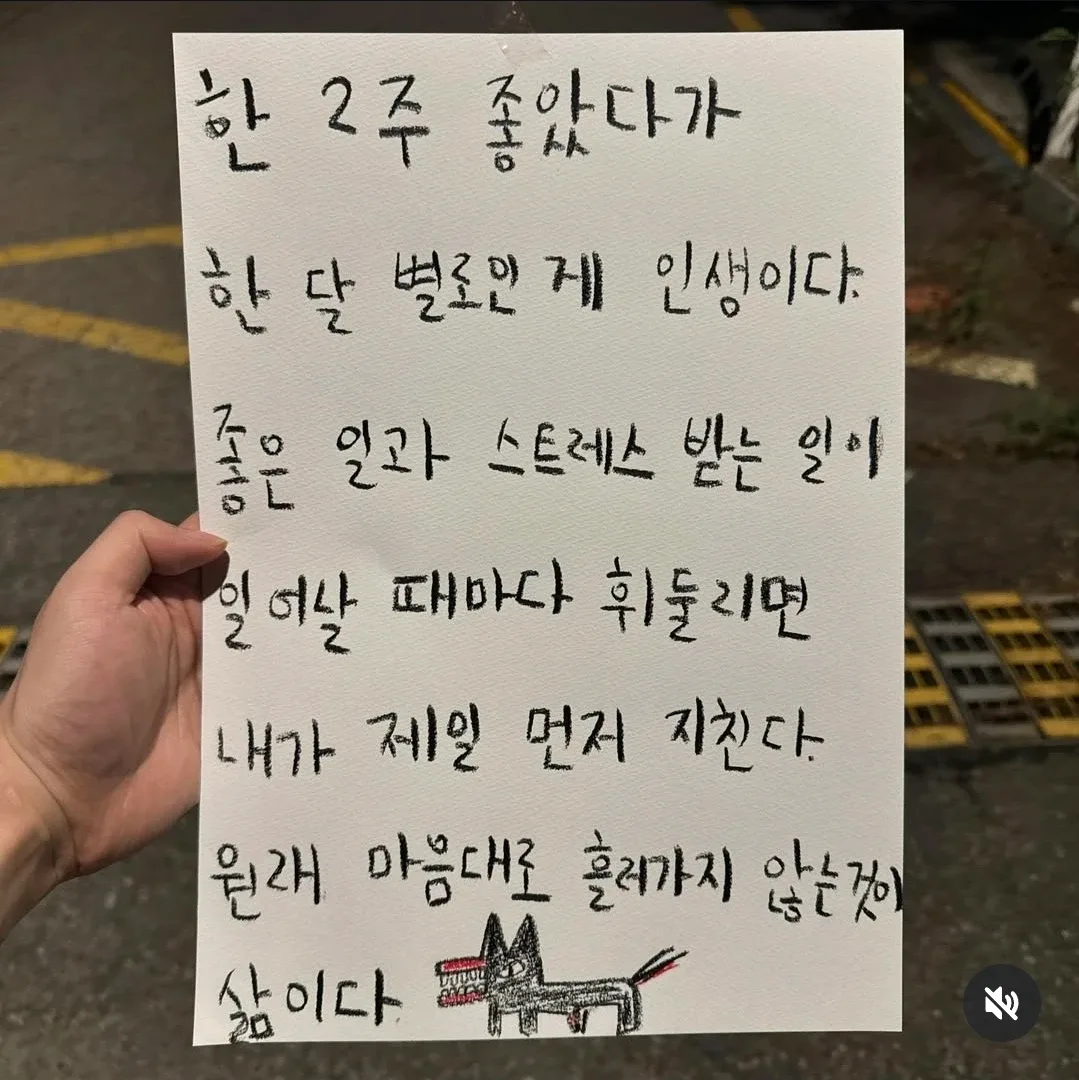 한 2주 좋았다가
한 달 별로인 게 인생이다.
좋은 일과 스트레스 받는 일이
일어날 때마다 휘둘리면
내가 제일 먼저 지친다.
원래 마음대로 흘러가지 않는것이
삶이다.